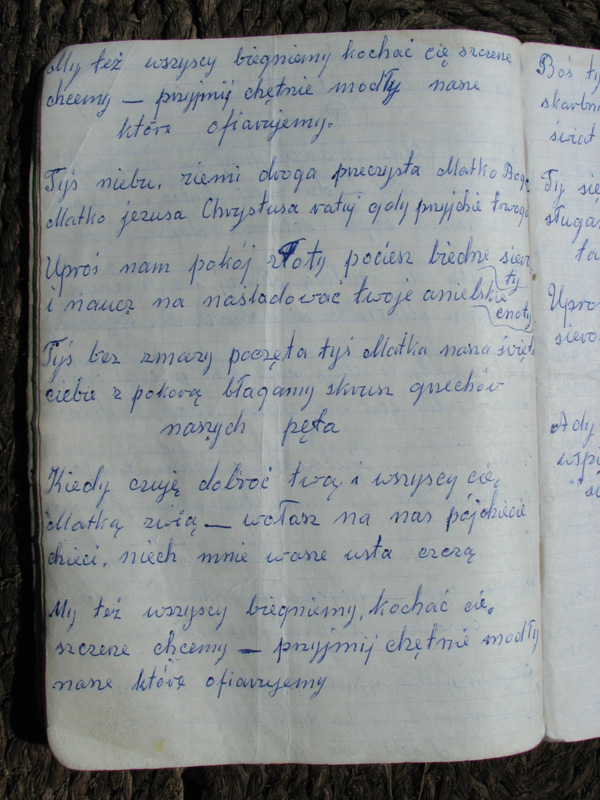 My też wszyscy biegniemy kochać cię szczeże
chcemy – przyjmij chętnie modły nasze
które ofiarujemy.
Tyś niebu, ziemi droga przeczysta Matko Boga
Matko jezusa Chrystusa ratuj gdy przyjdzie trwoga
Uproś nam pokój złoty pociesz biedne sieroty
i naucz na nasladować twoje anielskie cnoty
Tyś bez zmazy poczęta tyś Matka nasza święta
ciebie z pokorą błagamy skrusz grzechów
naszych pęta
Kiedy czuję dobroć twą i wszyscy cię
Matką zwią – wołasz na nas pójdzcie
dzieci, niech mnie wasze usta czczą
My też wszyscy biegniemy, kochać cię
szczeże chcemy – przyjmij chętnie modły
nasze które ofiarujemy
Boś
świat
Ty się